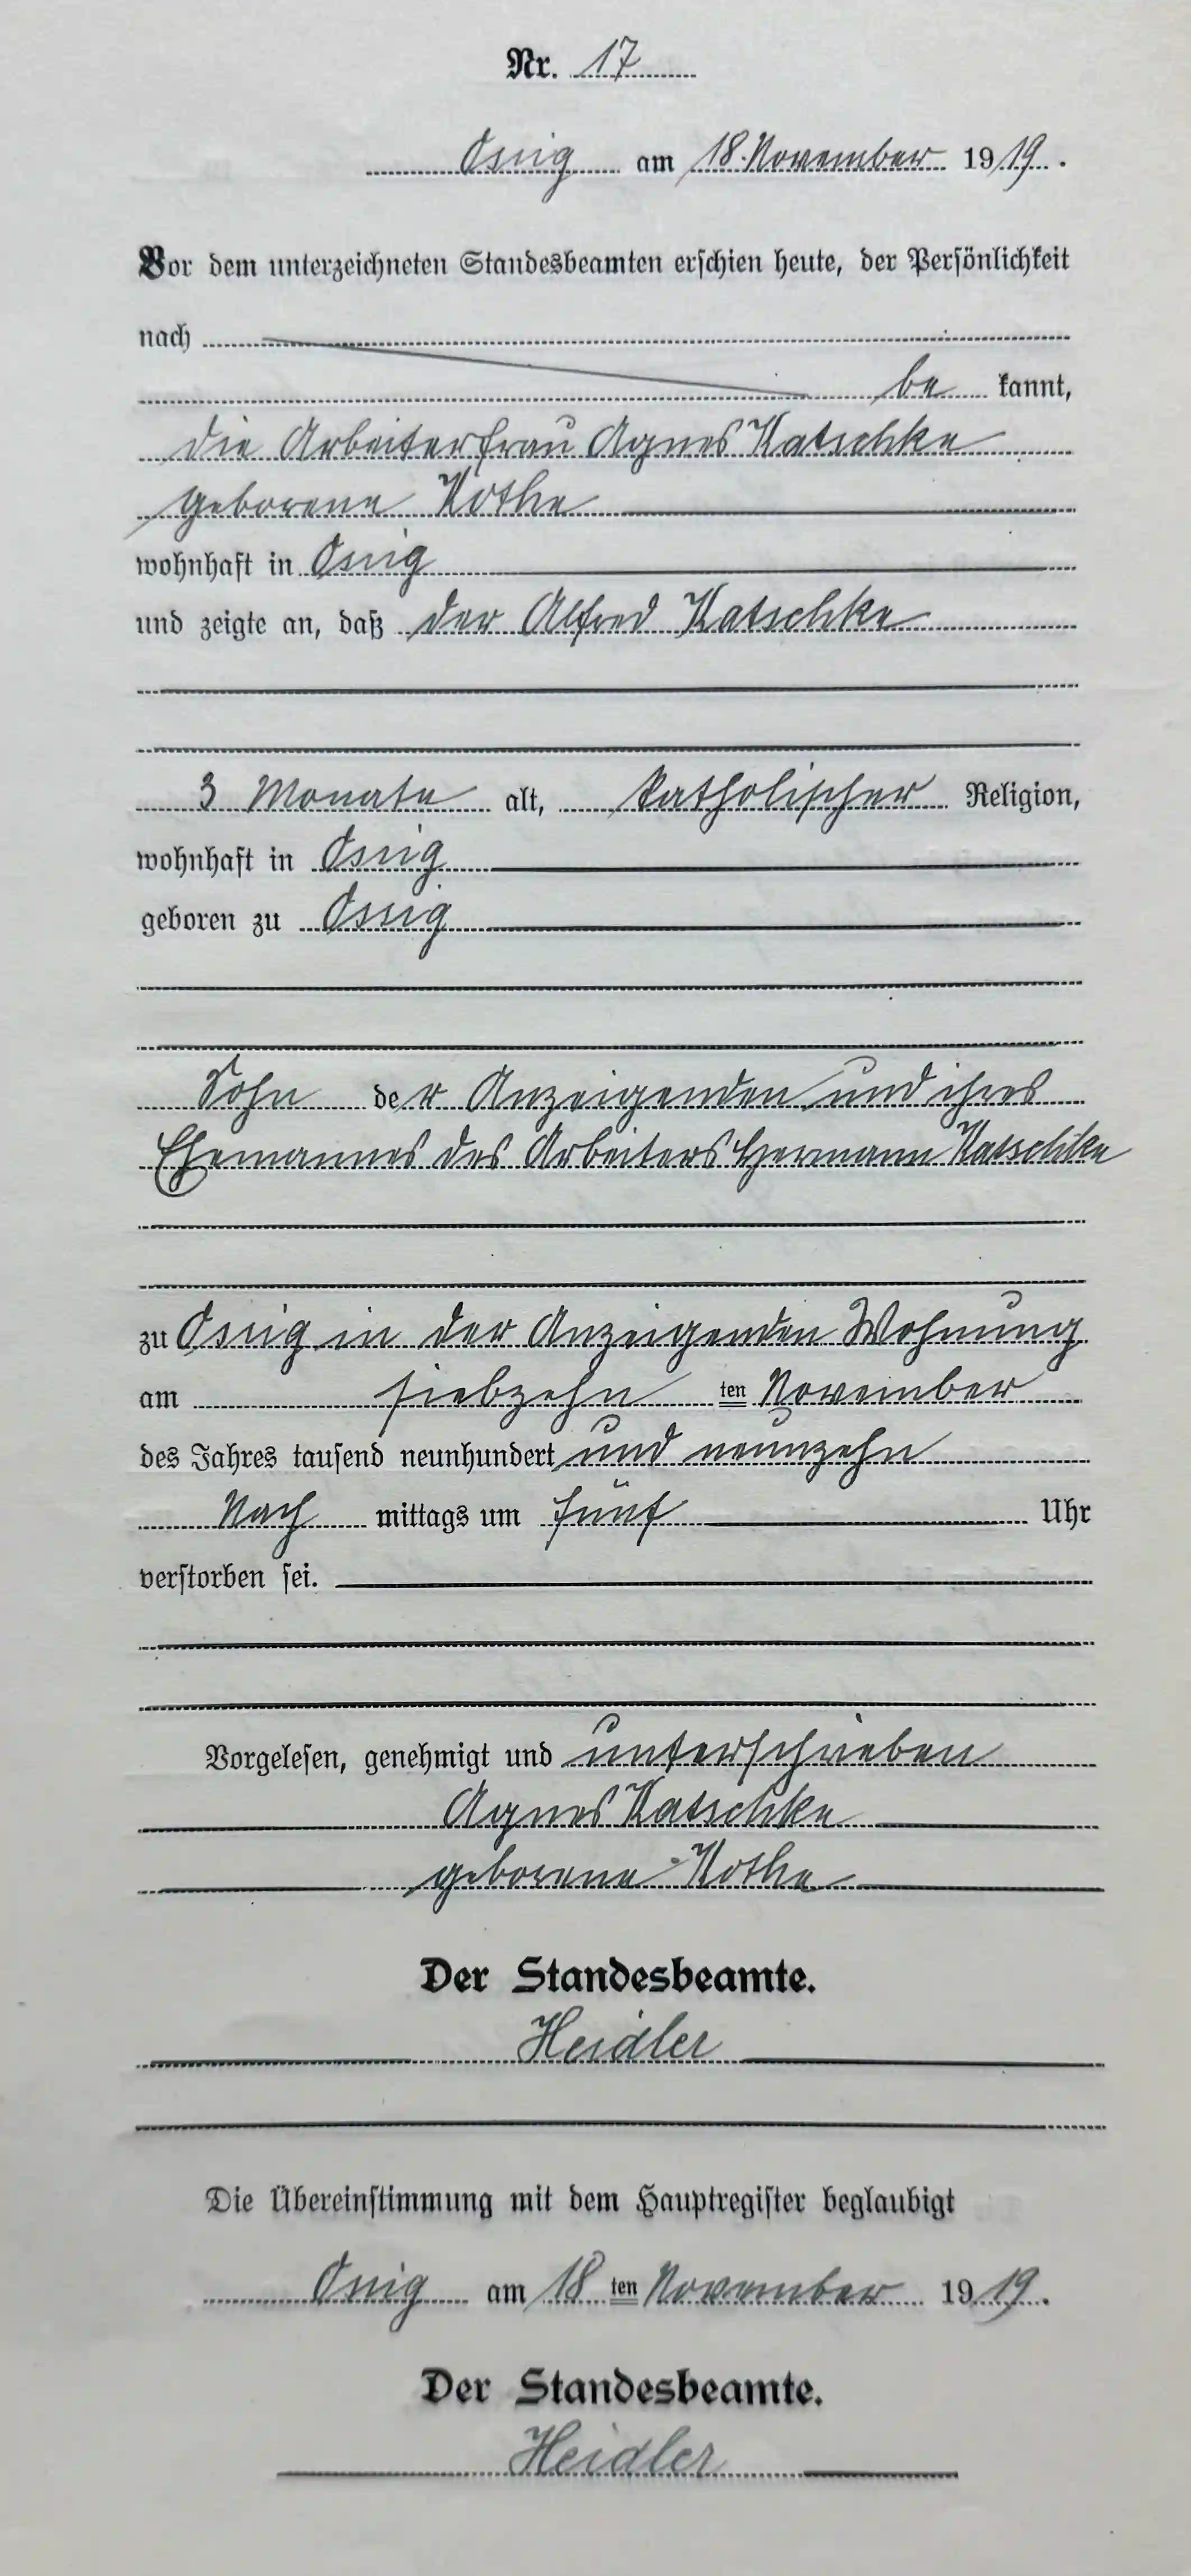 Nr. 17
Ossig am 18. November 1919.
Vor dem unterzeichneten Standesbeamten erschien heute, der Persönlichkeit
nach
be kannt,
die Arbeiterfrau Agnes Katschke
geborene Kothe
wohnhaft in Ossig
und zeigte an, daß der Alfred Katschke
3 Monate alt, katholischer Religion,
wohnhaft in Ossig
geboren zu Ossig
Sohn der Anzeigenden und ihres
Ehemannes des Arbeiters Hermann Katschke
zu Ossig in der Anzeigenden Wohnung
am siebzehn ten November
des Jahres tausend neunhundert und neunzehn
Nach mittags um fünf Uhr
verstorben sei.
Vorgelesen, genehmigt und unterschrieben
Agnes Katschke
geborene Kothe
Der Standesbeamte.
Heidler
Die Übereinstimmung mit dem Hauptregister beglaubigt
Ossig am 18 ten November 1919.
Der Standesbeamte.
Heidler